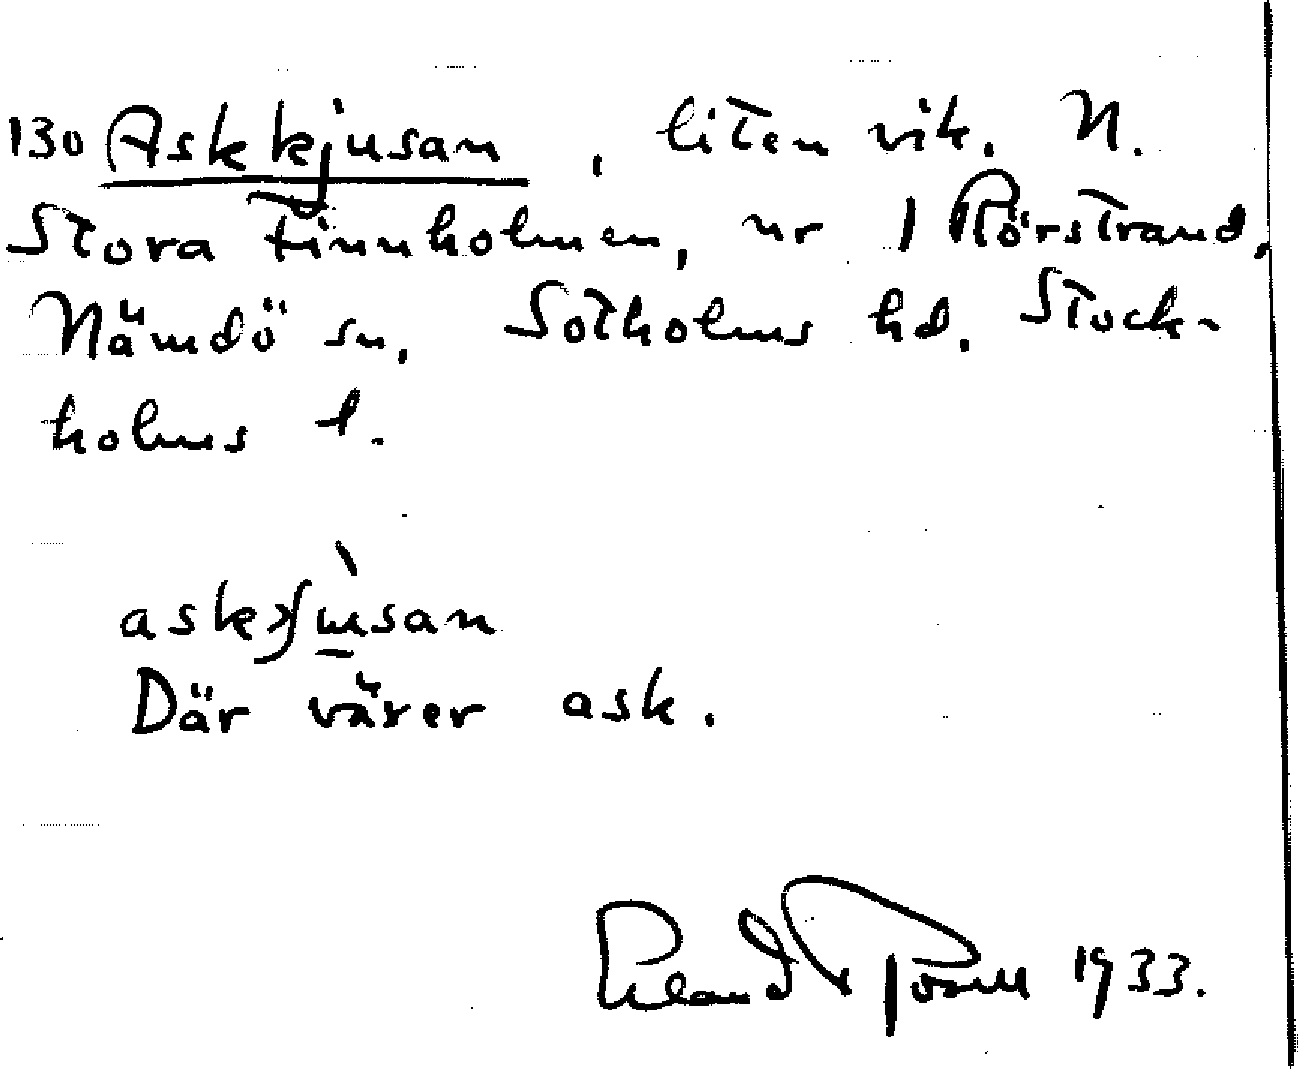 130 Askkjusan, liten vik. N.
Stora Finnholmen, nr 1 Rörstrand,
Nämdö sn, Sotholms hd. Stock-
holms l.
Där växer ask.
1933.